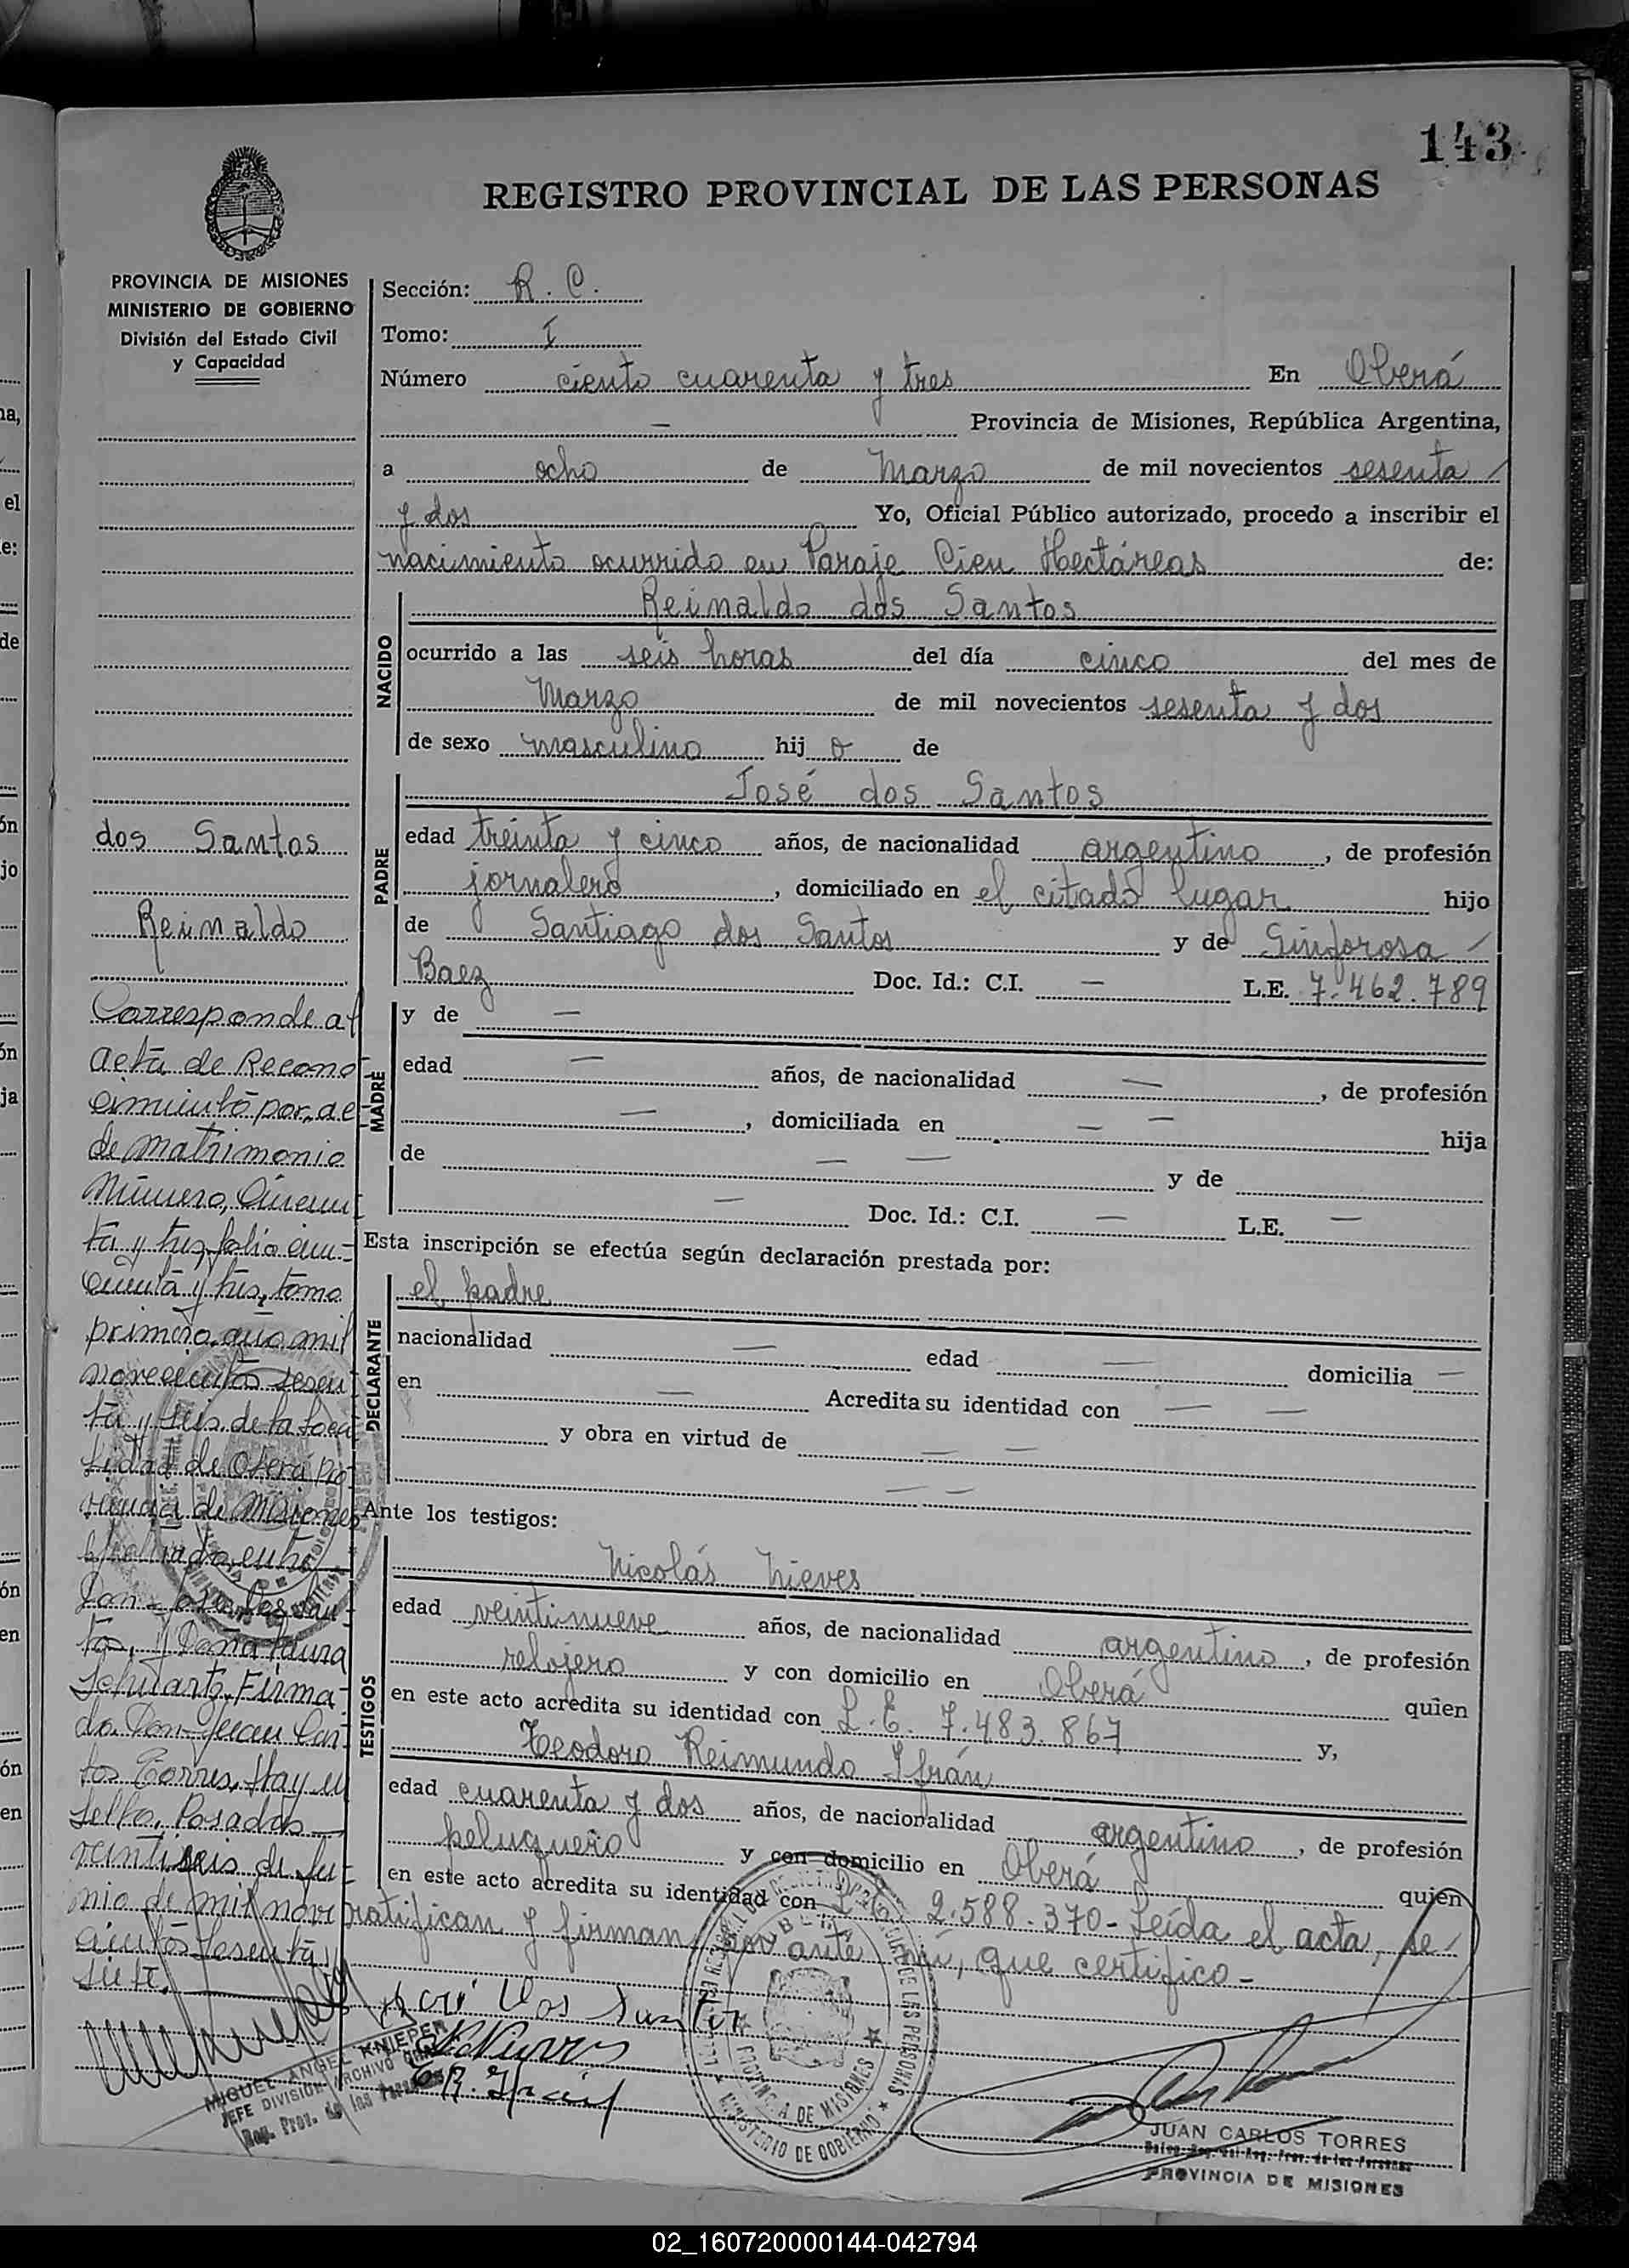 143
REGISTRO PROVINCIAL DE LAS PERSONAS
PROVINCIA DE MISIONES
MINISTERIO DE GOBIERNO
División del Estado Civil
y Capacidad
Sección: R. C.
Tomo: I
Número ciento cuarenta y tres En Oberá
— Provincia de Misiones, República Argentina,
a ocho de Marzo de mil novecientos sesenta
y dos Yo, Oficial Público autorizado, procedo a inscribir el
nacimiento ocurrido en Paraje Cien Hectáreas de:
NACIDO
Reinaldo dos Santos
ocurrido a las seis horas del día cinco del mes de
Marzo de mil novecientos sesenta y dos
de sexo masculino hijo de
PADRE
José dos Santos
edad treinta y cinco años, de nacionalidad argentino, de profesión
jornalero, domiciliado en el citado lugar hijo
de Santiago dos Santos y de Sinforosa
Baez Doc. Id.: C.I. — L.E. 7.462.789
MADRE
y de —
edad — años, de nacionalidad —, de profesión
—, domiciliada en — — hija
de — — y de
— Doc. Id.: C.I. — L.E. —
Esta inscripción se efectúa según declaración prestada por:
DECLARANTE
el padre
nacionalidad — edad — domicilia —
en — Acredita su identidad con — —
y obra en virtud de — —
— —
Ante los testigos:
TESTIGOS
Nicolás Nieves
edad veintinueve años, de nacionalidad argentino, de profesión
relojero y con domicilio en Oberá quien
en este acto acredita su identidad con L.E. 7.483.867 y,
Teodoro Reimundo Ifrán
edad cuarenta y dos años, de nacionalidad argentino, de profesión
peluquero y con domicilio en Oberá quien
en este acto acredita su identidad con L.E. 2.588.370- Leída el acta, se
ratifican y firman por ante mí, que certifico-
José dos Santos
JUAN CARLOS TORRES
PROVINCIA DE MISIONES
MINISTERIO DE GOBIERNO
PROVINCIA DE MISIONES
dos Santos
Reinaldo
Corresponde al
acta de Recono
cimiento por, ac
de matrimonio
Número, Cincuen
ta y tres, folio cin-
cuenta y tres, tomo
primero, año mil
novecientos sesen
ta y seis, de la loca
lidad de Oberá pro
vincia de Misiones
efectuado entre
Don José dos San-
tos, y Doña Laura
Schuartz, Firma-
do. Don Juan Car-
los Torres, Hay un
sello, Posadas
veintiseis de Ju-
nio de mil nove
cientos sesenta y
siete.
MIGUEL ANGEL KNIEPER
JEFE DIVISION ARCHIVO GRAL
Reg. Prov. de las Personas
02_160720000144-042794